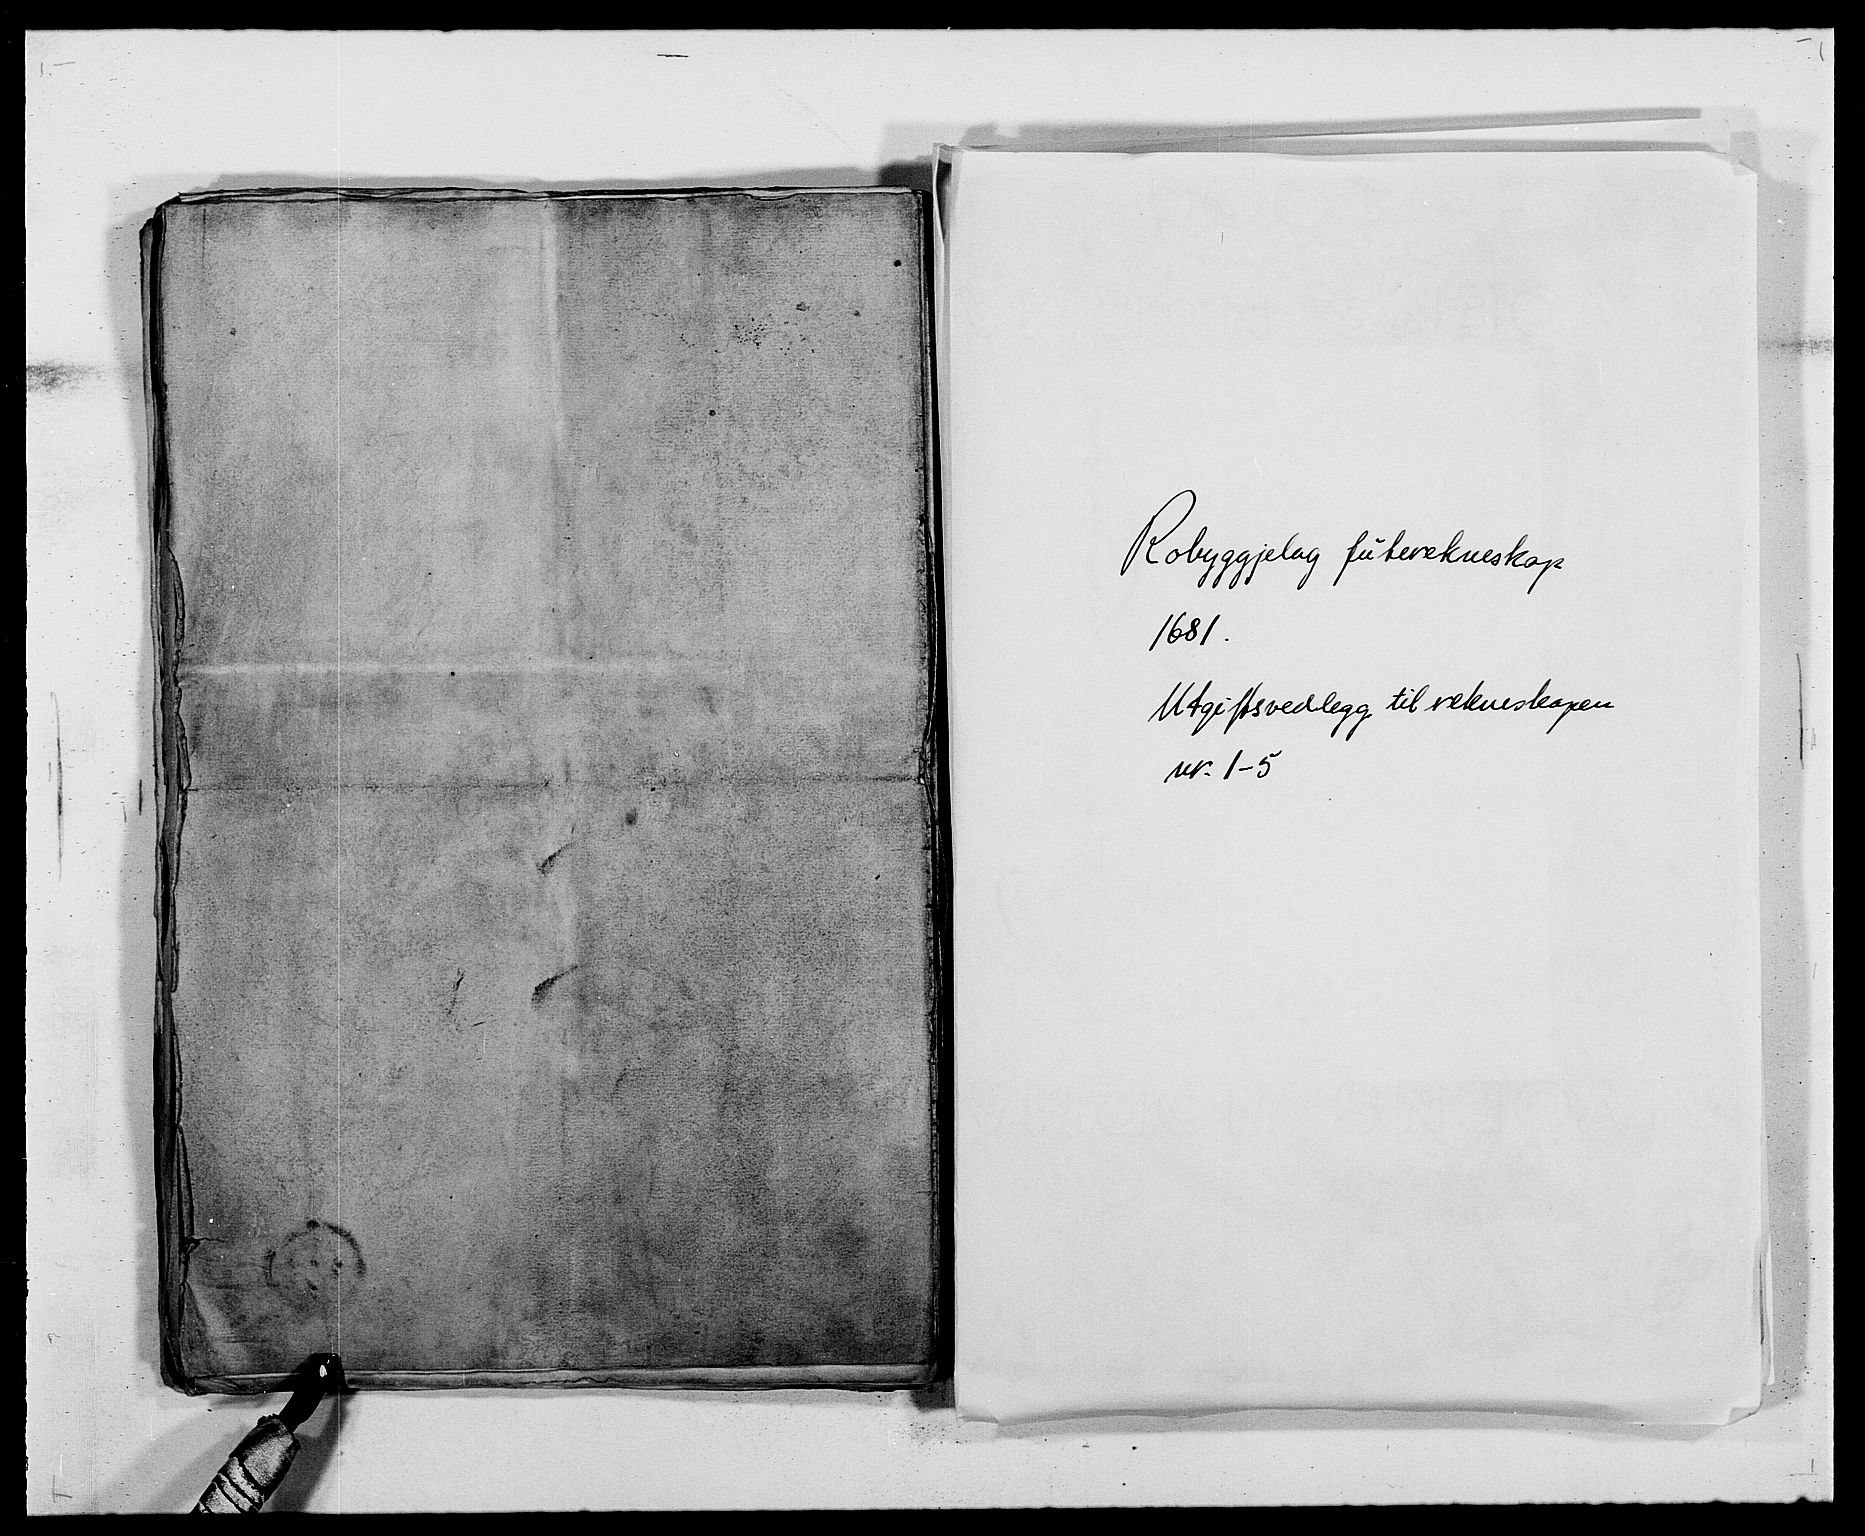 Robyggjelag futerekneskap
1681.
Utgiftsvedlegg til rekneskapen
nr. 1-5